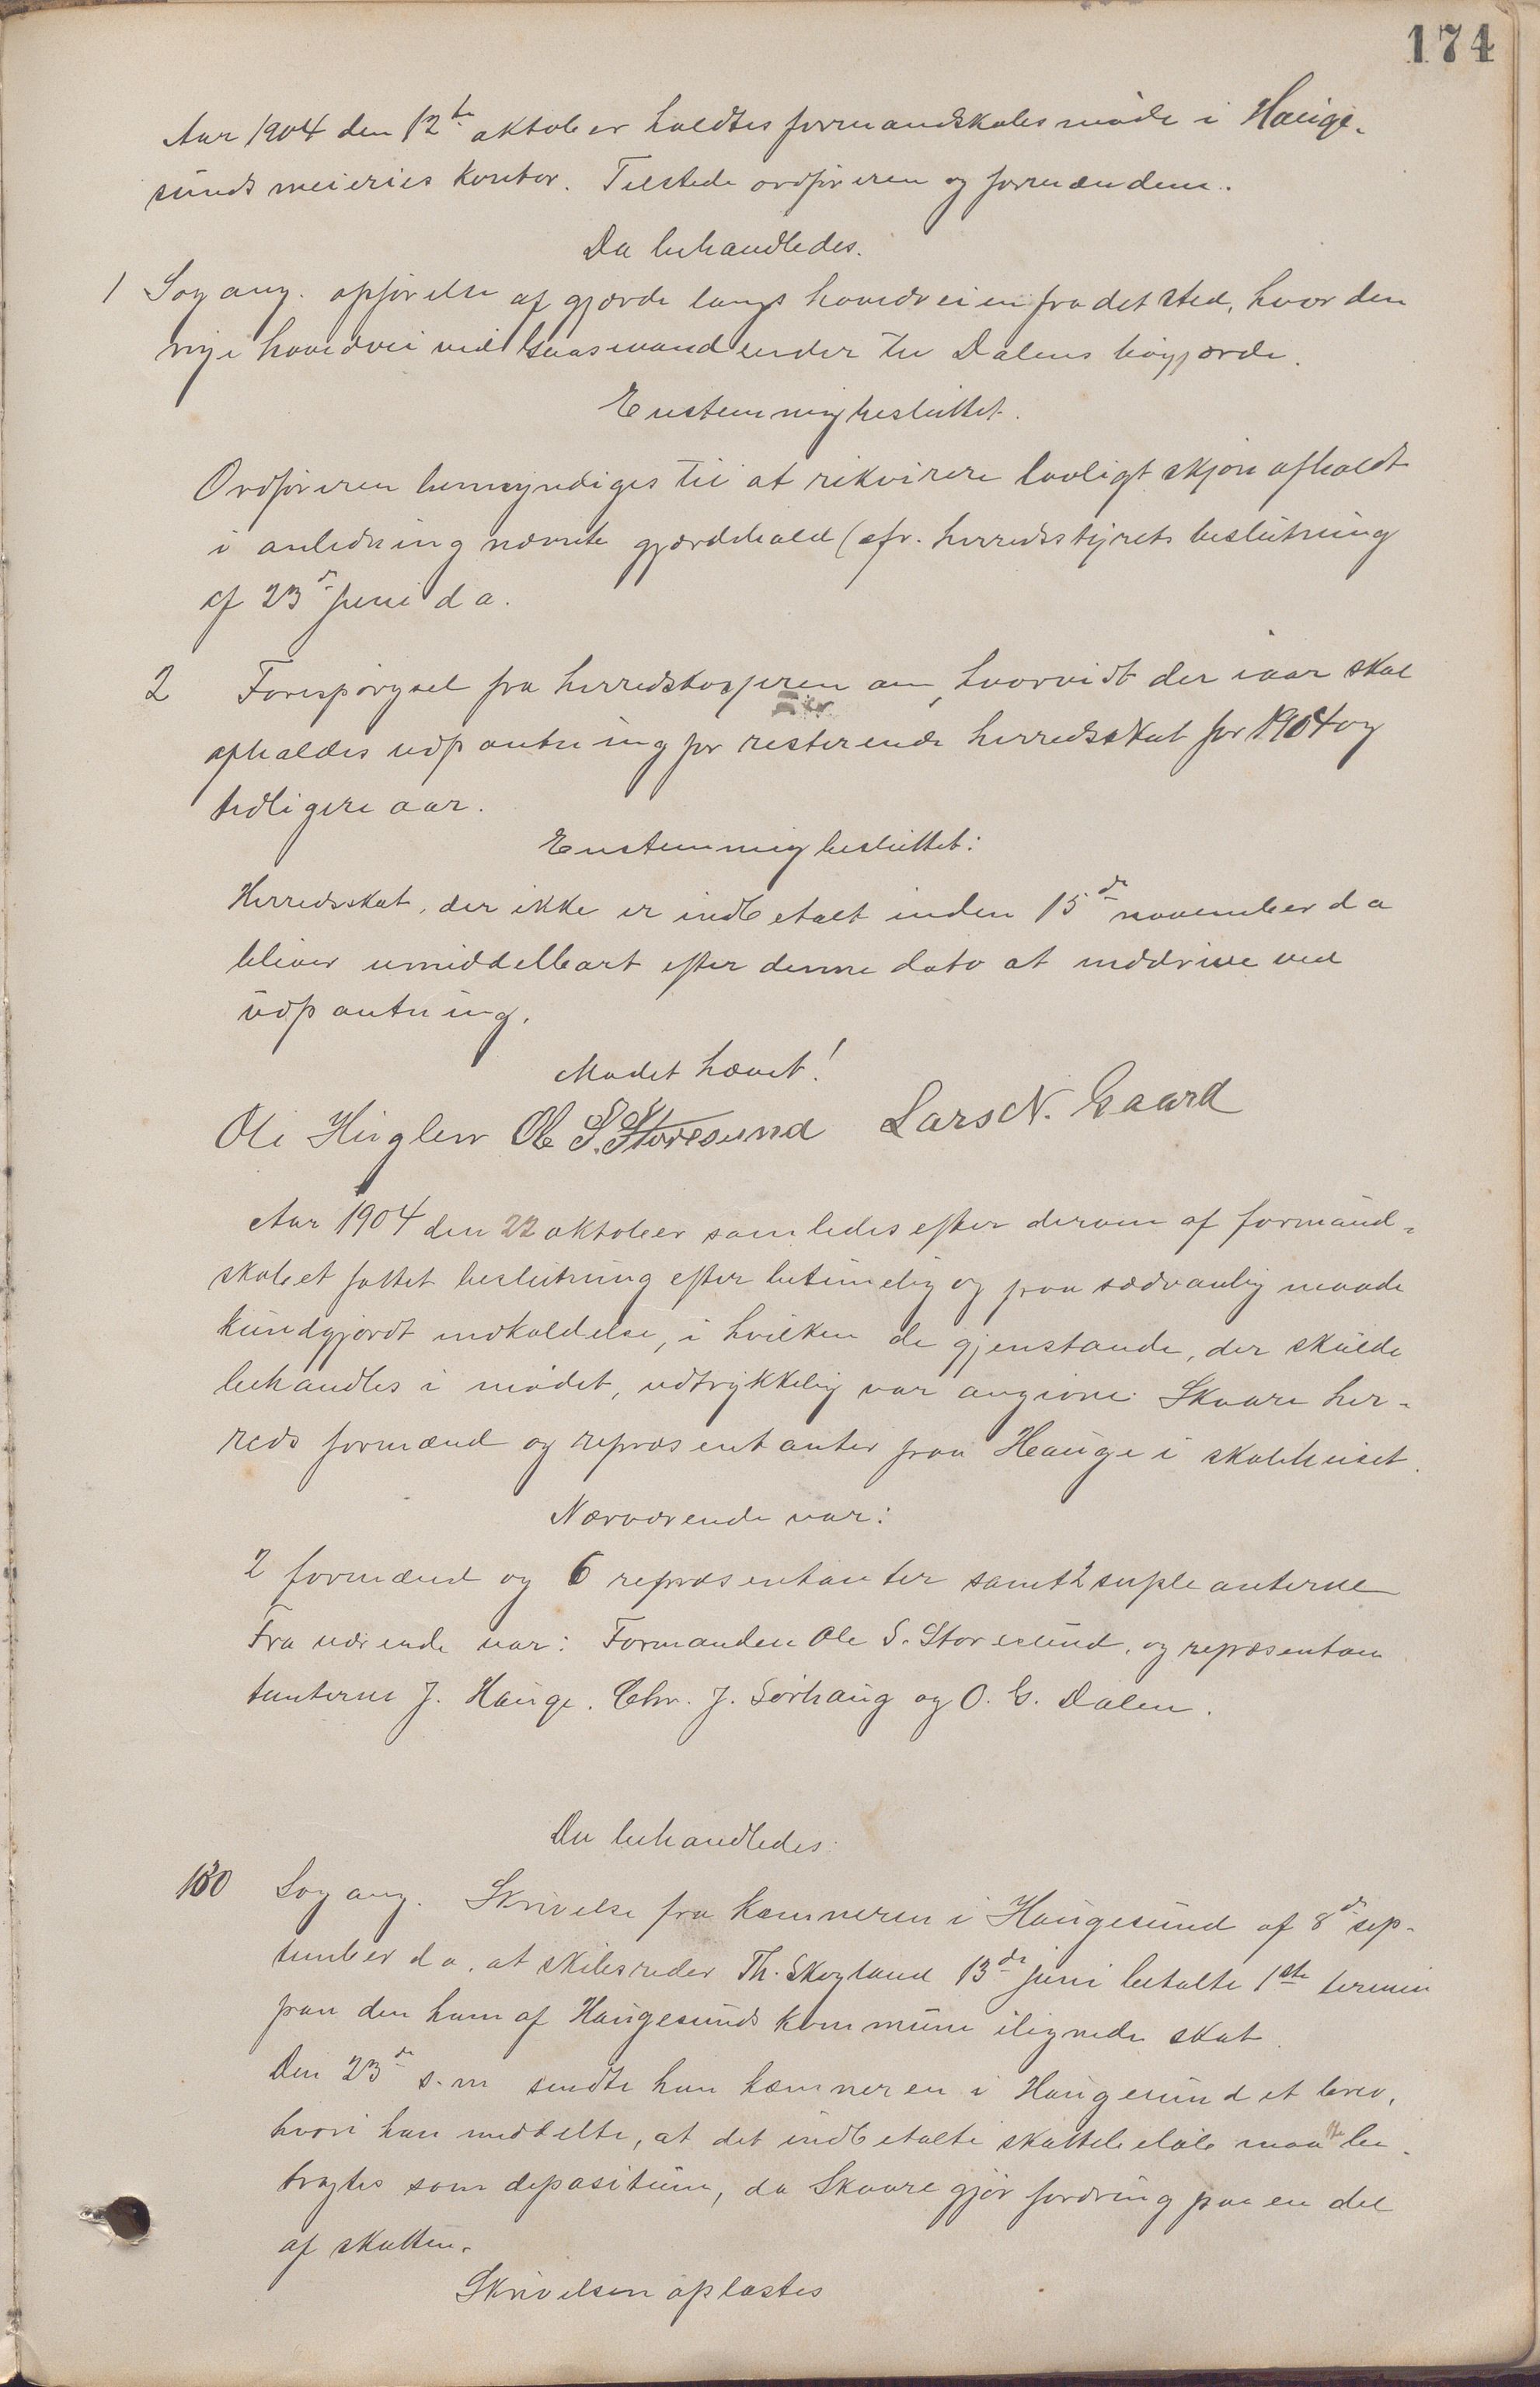 174
Aar 1904 den 12te oktober holdtes formandskabsmøde i Hauge-
sunds meieries kontor. Tilstede ordføreren og formændene.
Da behandledes.
1 Sag ang. opførelse af gjærde langs hovedveien fra det sted, hvor den
nye hovedvei ved Gaasvand ender til Dalens bøgjærde.
Enstemmig besluttet.
Ordføreren bemyndiges til at rekvirere lovligt skjøn afholdt
i anledning nævnte gjærdehold (cfr. herredsstyrets beslutning
af 23de juni d a.
2 Forespørgsel fra herredskasseren om, hvorvidt der iaar skal
afholdes udpantning for resterende herredsskat for 1904 og
tidligere aar.
Enstemmig besluttet:
Herredsskat, der ikke er indbetalt inden 15de november d a
bliver umiddelbart efter denne dato at inddrive ved
udpantning.
Mødet hævet!
Ole Hinglen Ole S. Storesund Lars N. Gaard
Aar 1904 den 22 oktober samledes efter derom af formand-
skabet fattet beslutning efter betimelig og paa sædvanlig maade
kundgjordt indkaldelse, i hvilken de gjenstande, der skulde
behandles i mødet, udtrykkelig var angivne Skaare her-
reds formænd og repræsentanter paa Hauge i skolehuset.
Nærværende var:
2 formænd og 6 repræsentanter samt 2 supleanterne
Fraværende var: Formanden Ole S. Storesund, og repræsentan
tanterne J. Hauge. Chr. J. Sørhaug og O. G. Dalen.
Da behandledes:
130 Sag ang. Skrivelse fra kæmneren i Haugesund af 8de sep-
tember d a, at skibsreder Th. Skogland 13de juni betalte 1ste termin
paa den ham af Haugesunds kommune ilignede skat.
Den 23de s. m sendte han kæmneren i Haugesund et brev,
hvori han meddelte, at det indbetalte skattebeløb maatte be-
tragtes som depositum, da Skaare gjør fordring paa en del
af skatten.
Skrivelsen oplæstes